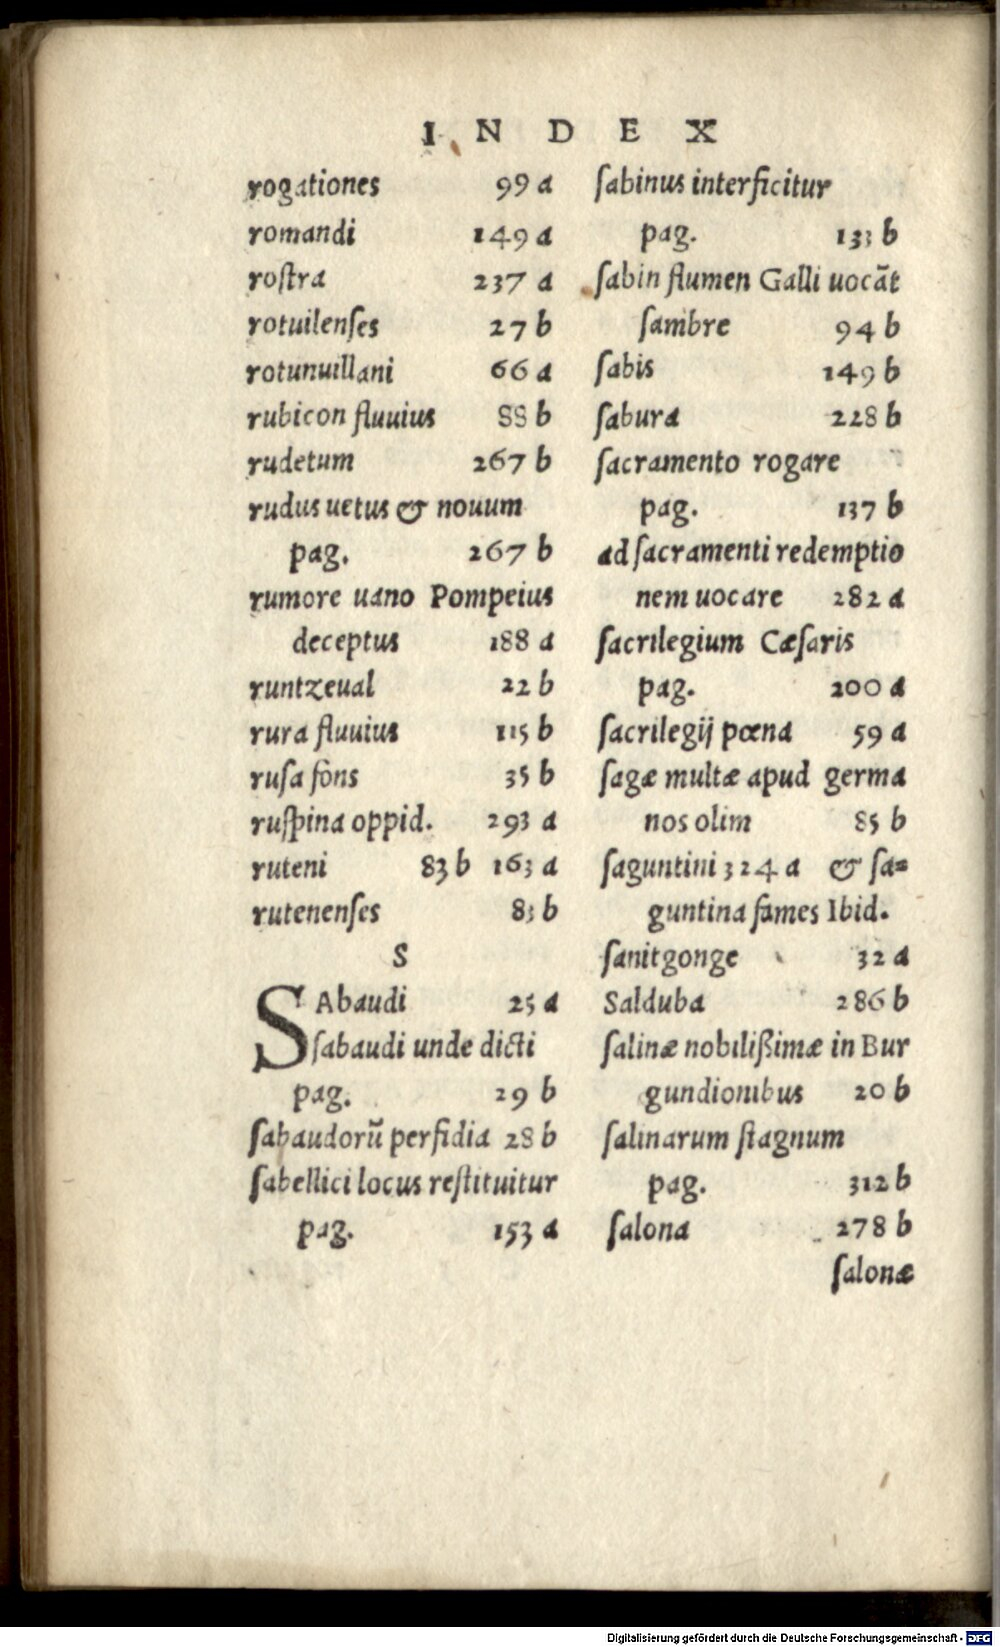 I N D E X
rogationes 99 a
romandi 149 a
roſtra 237 a
rotuilenſes 27 b
rotunuillani 66 a
rubicon fluuius 88 b
rudetum 267 b
rudus uetus & nouum
pag. 267 b
rumore uano Pompeius
deceptus 188 a
runtzeual 22 b
rura fluuius 115 b
ruſa fons 35 b
ruſpina oppid. 293 a
ruteni 83 b 163 a
rutenenſes 83 b
S
SAbaudi 25 a
ſabaudi unde dicti
pag. 29 b
ſabaudorū perfidia 28 b
ſabellici locus reſtituitur
pag. 153 a
ſabinus interficitur
pag. 133 b
ſabin flumen Galli uocāt
ſambre 94 b
ſabis 149 b
ſabura 228 b
ſacramento rogare
pag. 137 b
ad ſacramenti redemptio
nem uocare 282 a
ſacrilegium Cæſaris
pag. 200 a
ſacrilegij pœna 59 a
ſagæ multæ apud germa
nos olim 85 b
ſaguntini 324 a & ſa=
guntina fames Ibid.
ſanitgonge 32 a
Salduba 286 b
ſalinæ nobilißimæ in Bur
gundionibus 20 b
ſalinarum ſtagnum
pag. 312 b
ſalona 278 b
ſalonæ
Digitalisierung gefördert durch die Deutsche Forschungsgemeinschaft - DFG